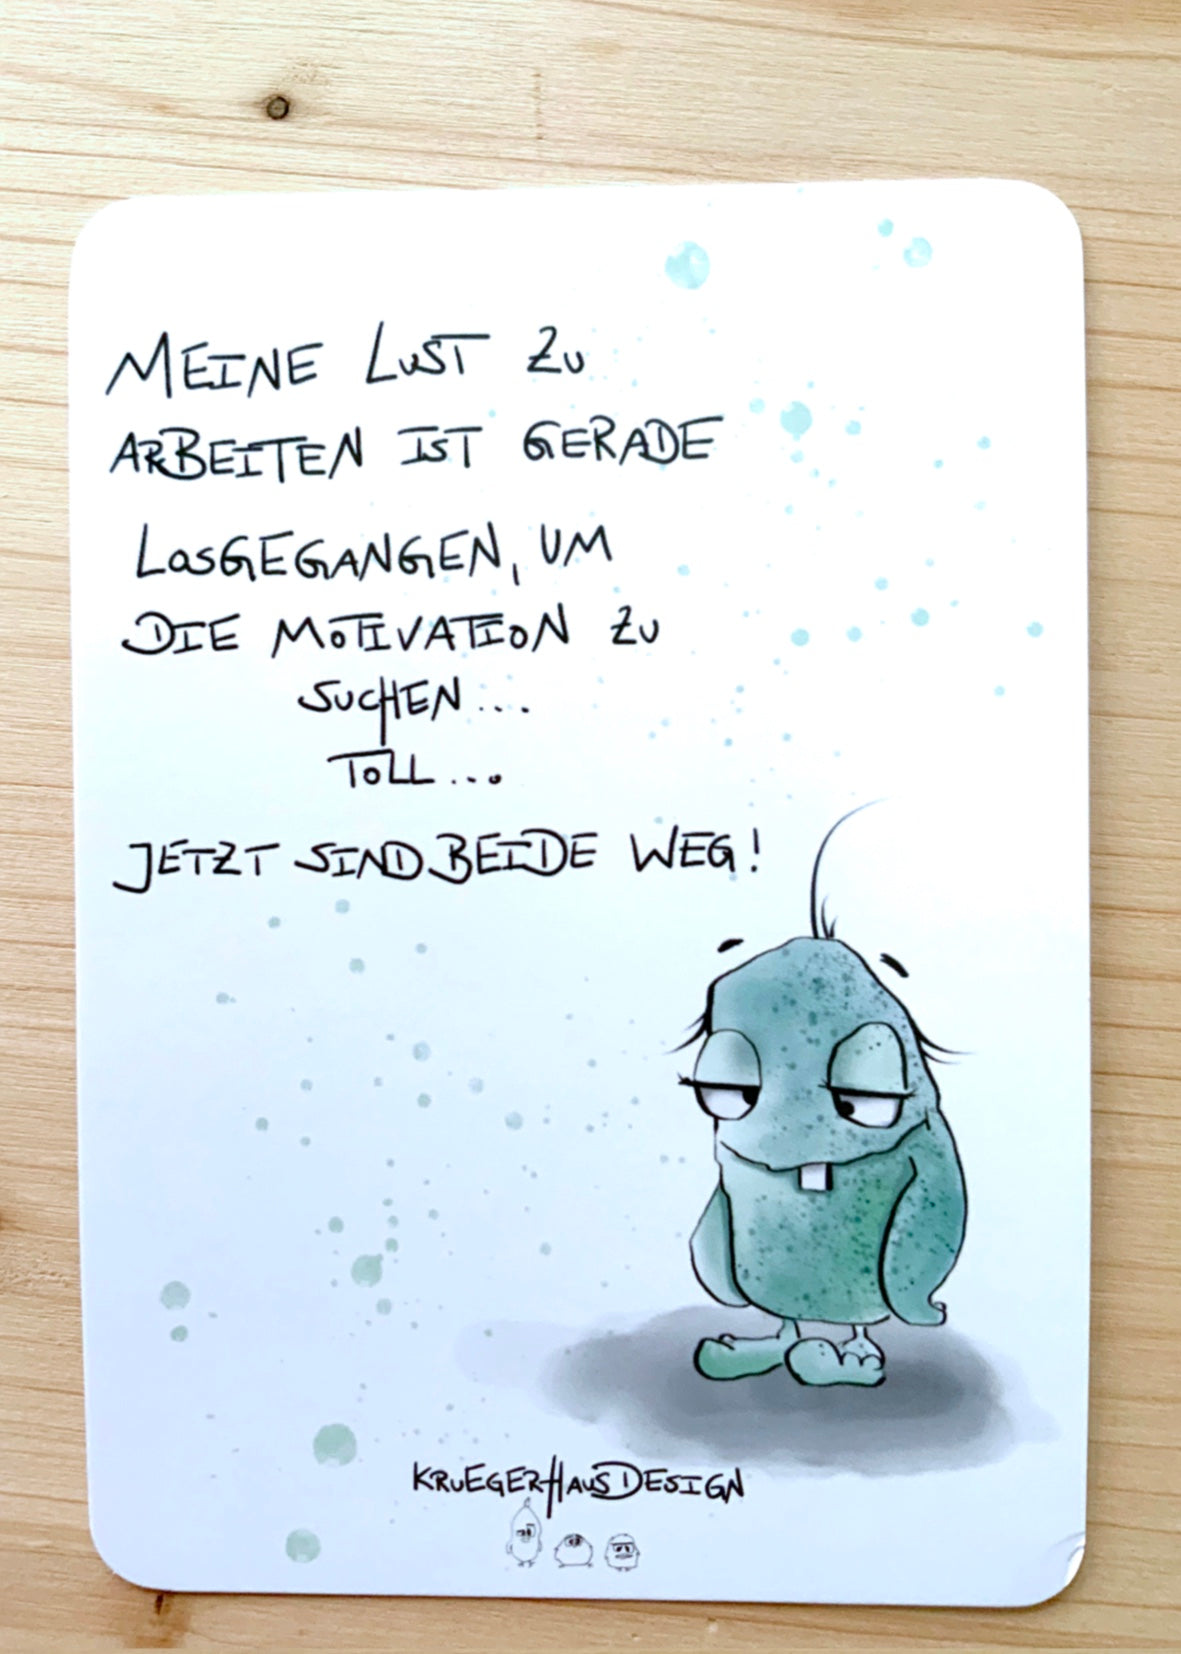 MEINE LUST ZU
ARBEITEN IST GERADE
LOSGEGANGEN, UM
DIE MOTIVATION ZU
SUCHEN...
TOLL...
JETZT SIND BEIDE WEG!
KRUEGERHAUSDESIGN